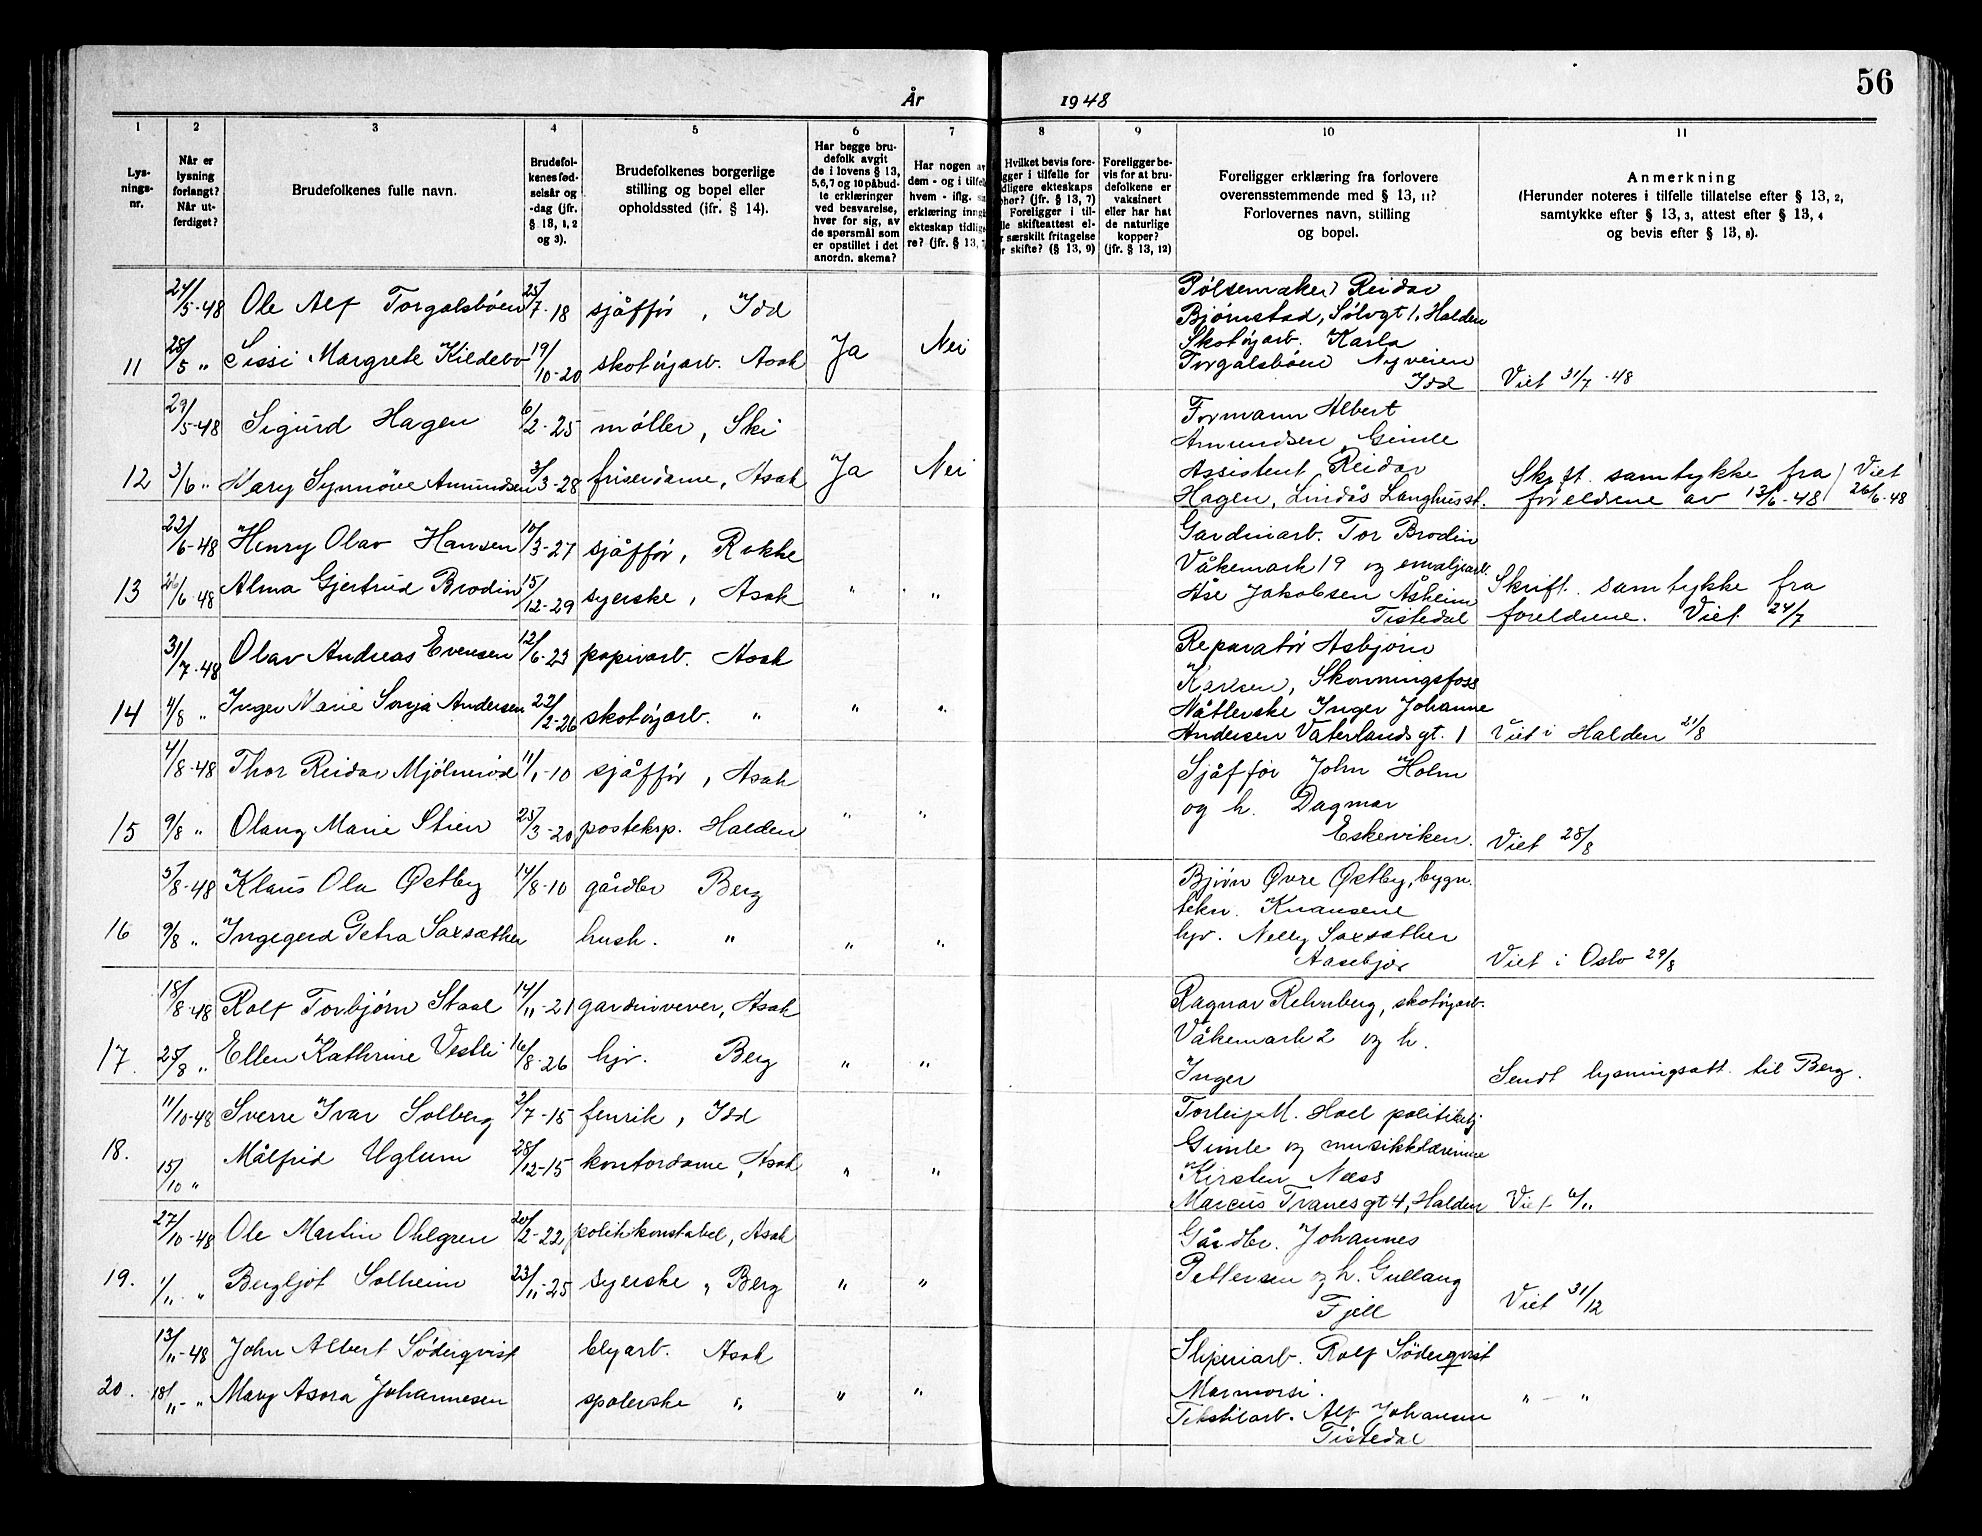 56
År 1948
1 2 3 4 5 6 7 8 9 10 11
Lys-
nings-
nr.
Når er
lysning
forlangt?
Når ut-
ferdiget?
Brudefolkenes fulle navn.
Brudefol-
kenes fød-
selsår og
-dag (jfr.
§ 13, 1, 2
og 3).
Brudefolkenes borgerlige
stilling og bopel eller
opholdssted (jfr. § 14).
Har begge bru-
defolk avgit
de i lovens § 13,
5, 6, 7 og 10 påbud-
te erklæringer
ved besvarelse,
hver for sig, av
de spørsmål som
er opstillet i det
anordn. skema?
Har nogen av
dem - og i tilfel
hvem - iflg.
erklæring inng
ekteskap tidlig
re? (jfr. § 13,
Hvilket bevis fore-
gger i tilfelle for
dligere ekteskaps
phør? (jfr. § 13, 7)
Foreligger i til-
lle skifteattest el-
r særskilt fritagelse
r skifte? (§ 13, 9)
Foreligger be-
vis for at bru-
defolkene er
vaksinert
eller har hat
de naturlige
kopper?
(jfr. § 13, 12)
Foreligger erklæring fra forlovere
overensstemmende med § 13, 11?
Forlovernes navn, stilling
og bopel.
Anmerkning
(Herunder noteres i tilfelle tillatelse efter § 13, 2,
samtykke efter § 13, 3, attest efter § 13, 4
og bevis efter § 13, 8).
24/5-48 Ole Alf Torgalsbøen 25/7-18 sjåffør, Idd
11 28/5 " Sissi Margrete Kildebo 19/10-20 skotøyarb. Asak Ja Nei
Pølsemaker Reidar
Bjørnstad, Sølvgt 1, Halden
Skotøyarb. Karla
Torgalsbøen Nyveien
Idd Viet 31/7-48
29/5-48 Sigurd Hagen 6/2-25 møller, Ski
12 3/6 " Mary Synnöve Amundsen 3/3-28 friserdame, Asak Ja Nei
Formann Albert
Amundsen Gimle
Assistent Reidar
Hagen, Lindås Langhusst.
Skrft. samtykke fra
foreldrene av 12/6-48
Viet
26/6-48
22/6-48 Henry Olav Hansen 10/3-27 sjåffør, Rokke
13 26/6-48 Alma Gjertrud Brodin 15/12-29 syerske, Asak " "
Gardinarb. Tor Brodin
Våkemark 19 og emaljearb.
Åse Jakobsen Åsheim
Tistedal
Skrift. samtykke fra
foreldrene. Viet 24/7
31/7-48 Olav Andreas Evensen 12/6-23 papirarb. Asak
14 4/8 " Inger Marie Sonja Andersen 22/2-26 skotøyarb. " " "
Reparatør Asbjørn
Karlsen, Skonningsfoss
Nåtlerske Inger Johanne
Andersen Vaterlands gt. 1 Viet i Halden 21/8
4/8-48 Thor Reidar Mjölnerød 11/1-10 sjåffør, Asak
15 9/8 " Olaug Marie Stien 25/3-20 posteksp. Halden " "
Sjåffør John Holm
og h. Dagmar
Eskeviken. Viet 28/8
5/8-48 Klaus Ola Østby 14/8-10 gårdbr Berg
16 9/8 " Ingegerd Petra Saxsæther hush. " " "
Bjørn Øvre Østby, bygn.
tekn. Knausene
hjv. Nelly Saxsæther
Aasebjør Viet i Oslo 29/8
18/8-48 Rolf Torbjørn Staal 14/11-21 gardinvever, Asak
17. 25/8 " Ellen Kathrine Vestli 16/8-26 hjv. Berg " "
Ragnar Rehnberg, skotøyarb.
Våkemark 2 og h.
Inger Sendt lysningsatt. til Berg.
11/10-48 Sverre Ivar Solberg 2/7-15 fenrik, Idd
18. 15/10 " Målfrid Uglum 28/12-15 kontordame, Asak " "
Torleif M. Hoel politibetj
Gimle og musikklærerinne
Kirsten Næss
Marcus Tranes gt 4, Halden Viet 6/11
27/10-48 Ole Martin Ohlgren 20/2-22 politikonstabel, Asak
19. 1/11 " Bergljot Solheim 23/11-25 syerske, Berg " "
Gårdbr. Johannes
Pettersen og h. Gullaug
Fjell Viet 31/12
13/11-48 John Albert Söderqvist blyarb. Asak
20. 18/11- " Mary Asora Johannesen spolerske " " "
Sliperiarb. Rolf Söderqvist
Marmorsl.
Tekstilarb. Alf Johansen
Tistedal " - "